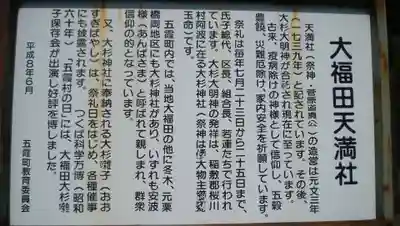 大福田天満社
天満社(祭神・菅原道真公)の造営は元文三年
(一七三九年)と記されています。その後、
大杉大明神が合祀され現在に至っています。
古来、疫病除けの神様として信仰し、五穀
豊饒、災難厄除け、家内安全を祈願しています。
祭礼は毎年七月二十三日から二十五日まで、
氏子総代、区長、組合長、若連たちで行われ
ています。大杉大明神の発祥は、稲敷郡桜川
村阿波に在る大杉神社(祭神は倭大物主櫛
玉命)です。
五霞町内では、当地大福田の他に冬木、元栗
橋両地区にも大杉神社があり、いずれも安波
様(あんばさま)と呼ばれて親しまれ、群衆
信仰的となっています。
又、大杉神社に奉納される大杉ばやし(おお
すぎばやし)は、祭礼日をはじめ、各種催事
にも披露されます。つくば科学万博(昭和
六十年)「五霞村の日」には、大福田大杉ばやし
保存会が出演し好評を博しました。
平成8年6月
五霞町教育委員会